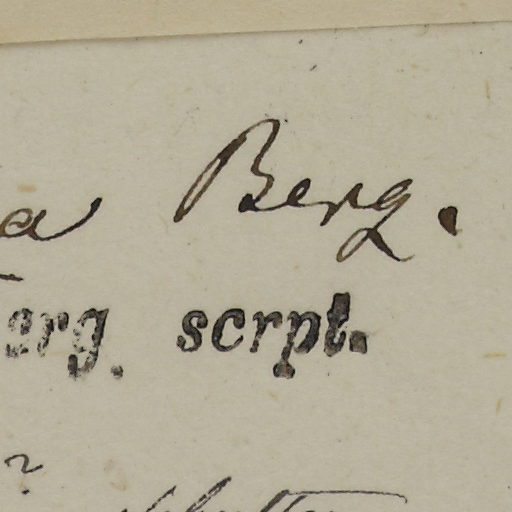 a Berg.
erg. scrpt.
?